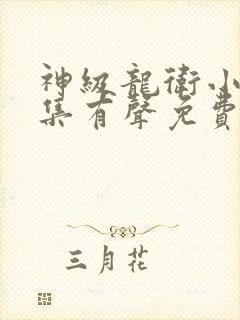 神級龍衛小
集有聲免費
三月花